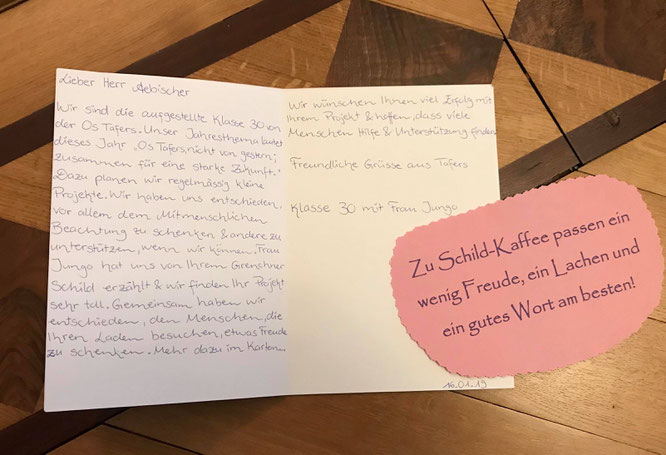 Lieber Herr Aebischer
Wir sind die aufgestellte Klasse 30 von
der Os Tafers. Unser Jahresthema lautet
dieses Jahr „Os Tafers, nicht von gestern;
zusammen für eine starke Zukunft."
Dazu planen wir regelmässig kleine
Projekte. Wir haben uns entschieden,
vor allem dem Mitmenschlichen
Beachtung zu schenken & andere zu
unterstützen, wenn wir können. Frau
Jungo hat uns von Ihrem Grenchner
Schild erzählt & wir finden Ihr Projekt
sehr toll. Gemeinsam haben wir
entschieden, den Menschen, die
Ihren Laden besuchen, etwas Freude
zu schenken. Mehr dazu im Karton...
Wir wünschen Ihnen viel Erfolg mit
Ihrem Projekt & hoffen, dass viele
Menschen Hilfe & Unterstützung finden.
Freundliche Grüsse aus Tafers
Klasse 30 mit Frau Jungo
16.01.19
Zu Schild-Kaffee passen ein
wenig Freude, ein Lachen und
ein gutes Wort am besten!